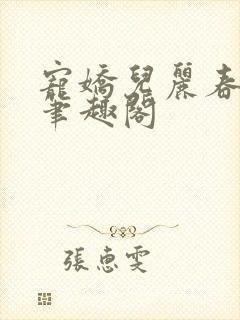 寵嬌兒麗春
筆趣閣
張惠雯